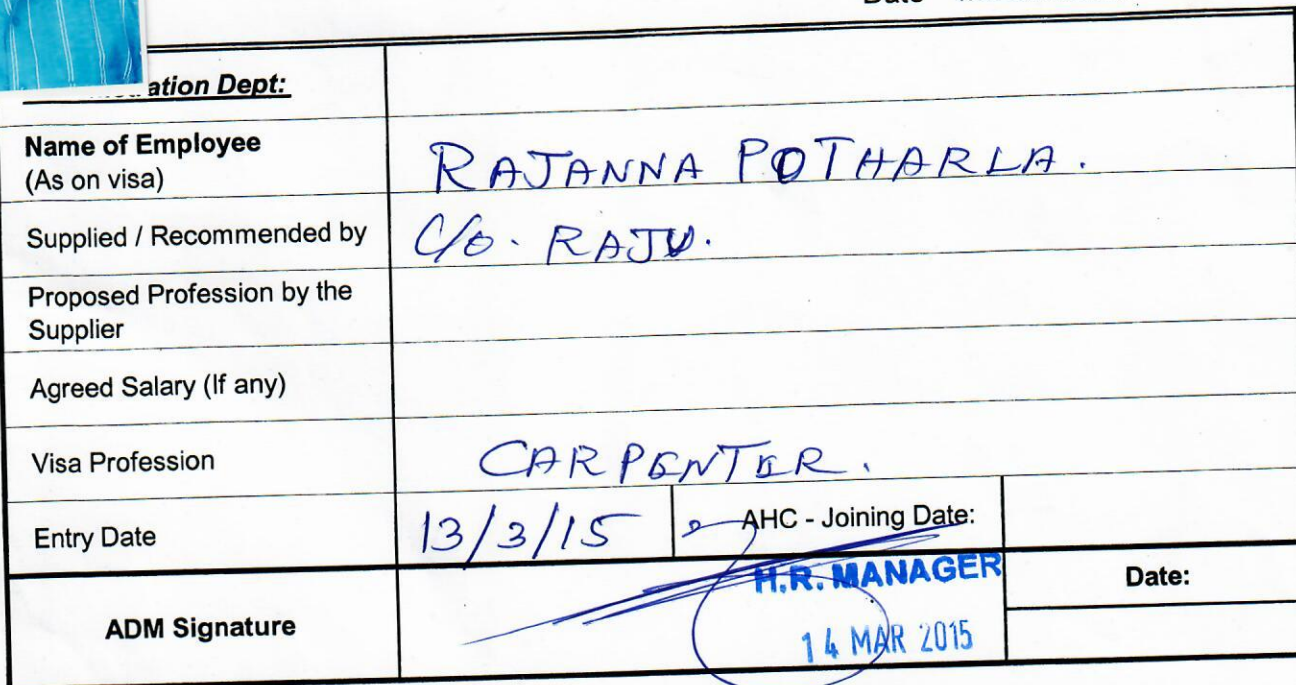 Date
ation Dept:
Name of Employee
(As on visa)
RAJANNA POTHARLA.
Supplied / Recommended by
C/o. RAJU.
Proposed Profession by the
Supplier
Agreed Salary (If any)
Visa Profession
CARPENTER.
Entry Date
13/3/15
AHC - Joining Date:
ADM Signature
H.R. MANAGER
14 MAR 2015
Date: